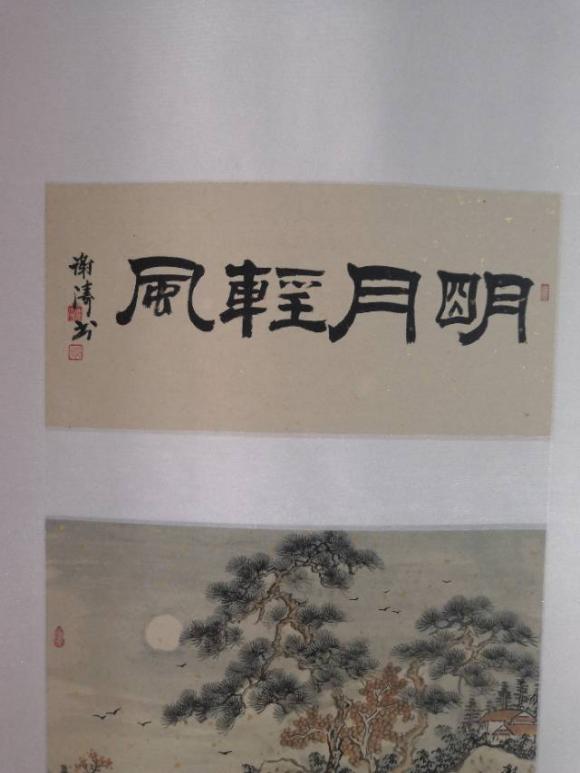 明月輕風
謝濤书